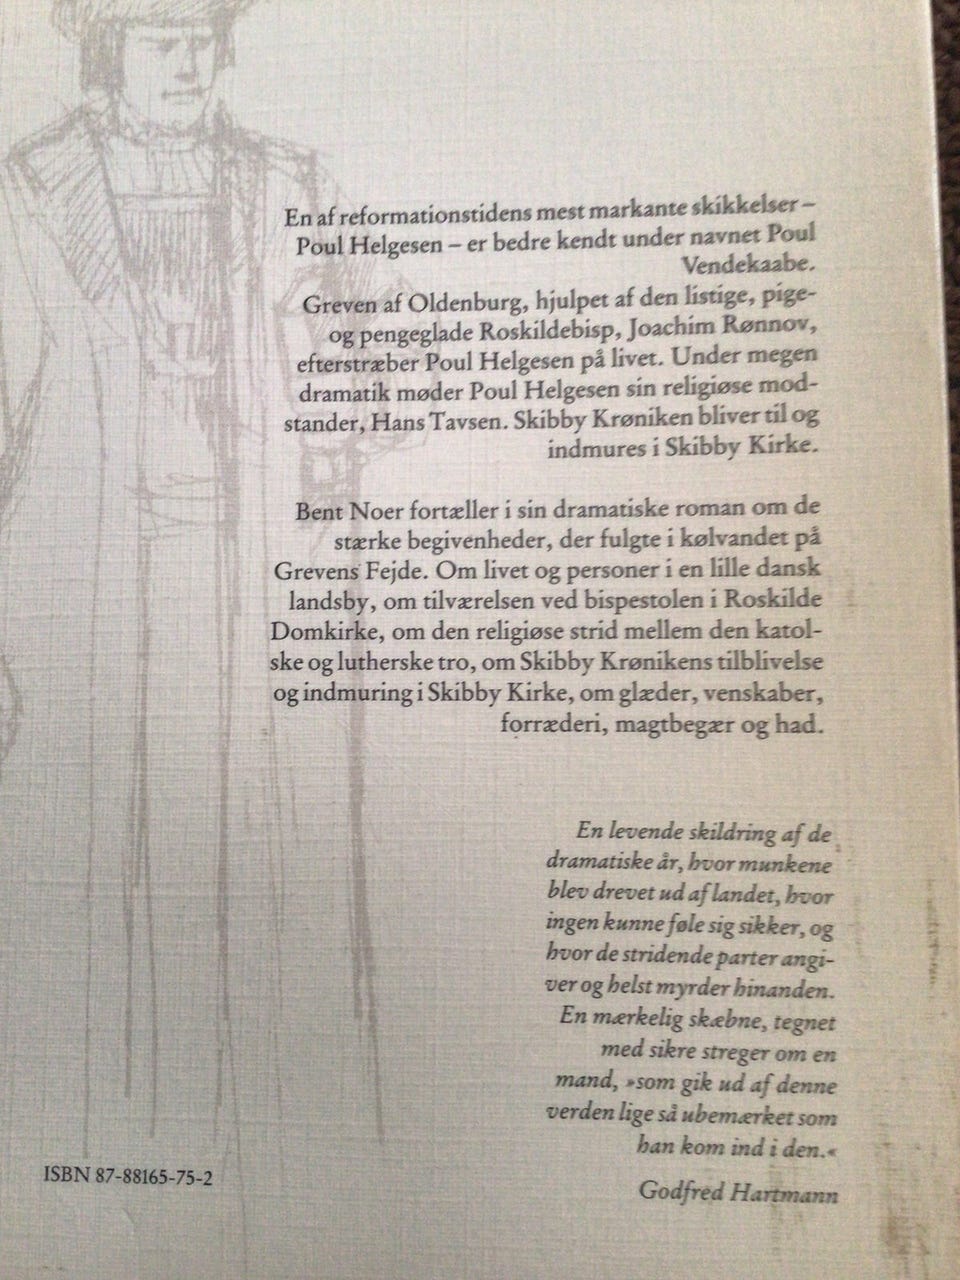 En af reformationstidens mest markante skikkelser –
Poul Helgesen – er bedre kendt under navnet Poul
Vendekaabe.
Greven af Oldenburg, hjulpet af den listige, pige-
og pengeglade Roskildebisp, Joachim Rønnov,
efterstræber Poul Helgesen på livet. Under megen
dramatik møder Poul Helgesen sin religiøse mod-
stander, Hans Tavsen. Skibby Krøniken bliver til og
indmures i Skibby Kirke.
Bent Noer fortæller i sin dramatiske roman om de
stærke begivenheder, der fulgte i kølvandet på
Grevens Fejde. Om livet og personer i en lille dansk
landsby, om tilværelsen ved bispestolen i Roskilde
Domkirke, om den religiøse strid mellem den katol-
ske og lutherske tro, om Skibby Krønikens tilblivelse
og indmuring i Skibby Kirke, om glæder, venskaber,
forræderi, magtbegær og had.
En levende skildring af de
dramatiske år, hvor munkene
blev drevet ud af landet, hvor
ingen kunne føle sig sikker, og
hvor de stridende parter angi-
ver og helst myrder hinanden.
En mærkelig skæbne, tegnet
med sikre streger om en
mand, »som gik ud af denne
verden lige så ubemærket som
han kom ind i den.«
Godfred Hartmann
ISBN 87-88165-75-2